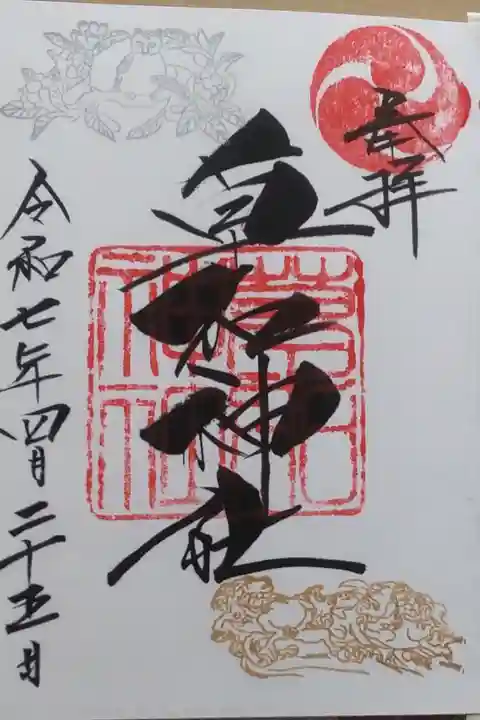 奉拝
草加神社
令和七年四月二十五日